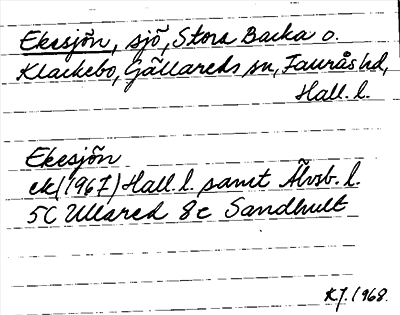 Ekesjön, sjö, Stora Backa o.
Klackebo, Gällareds sn, Faurås hd,
Hall. l.
Ekesjön
ek (1967) Hall. l. samt Älvsb. l.
5C Ullared 8c Sandhult
KJ. 1968.